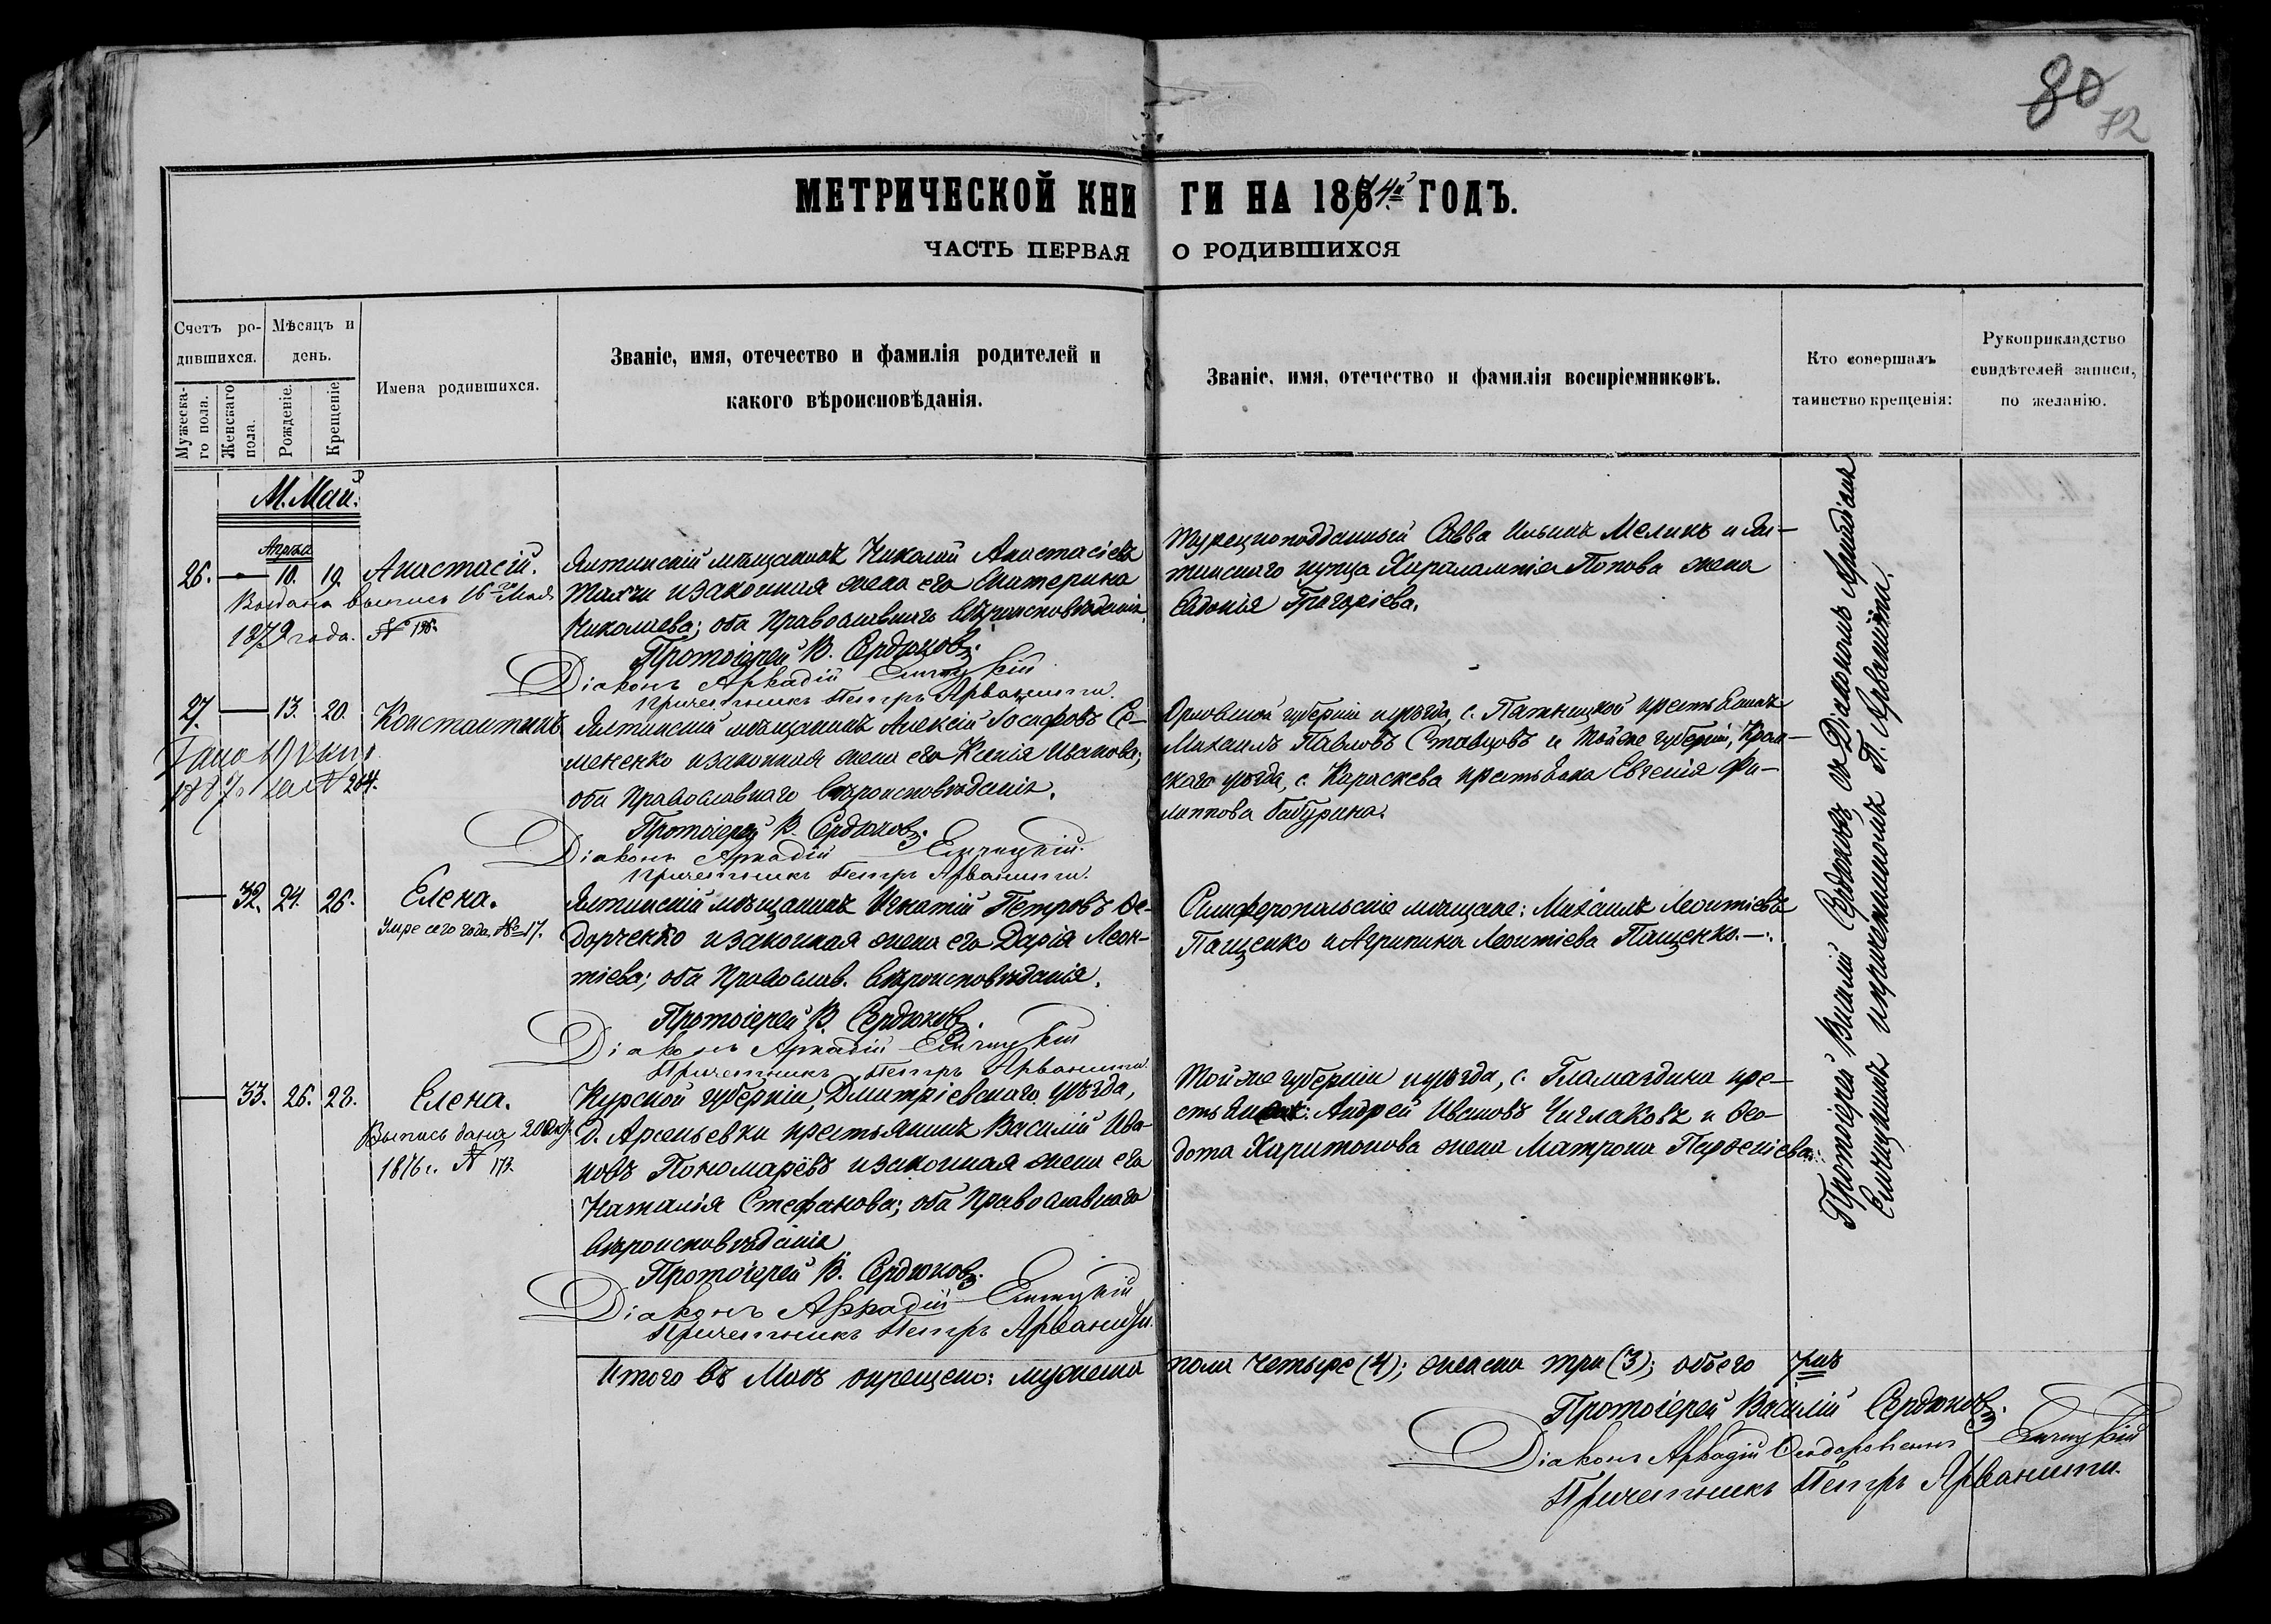 80
72
МЕТРИЧЕСКОЙ КНИГИ НА 1874й ГОДЪ.
ЧАСТЬ ПЕРВАЯ О РОДИВШИХСЯ
Счетъ родившихся.
Мужескаго пола.
Женскаго пола.
Мѣсяцъ и день.
Рожденіе.
Крещеніе
Имена родившихся.
Званіе, имя, отечество и фамилія родителей и
какого вѣроисповѣданія.
Званіе, имя, отечество и фамилія воспріемниковъ.
Кто совершалъ
таинство крещенія:
Рукоприкладство
свидѣтелей записи,
по желанію.
М. Май.
26. — 10. 19. Анастасій.
Выдана выпись 16го Мая
1879 года. №
Ялтинскій мѣщанинъ Николай Анастасіевъ
и законная жена его Екатерина
Николаева; оба Православнаго вѣроисповѣданія.
Протоіерей В. Сердюковъ.
Діаконъ Аркадій
Причетникъ Петръ Арванити.
Турецкоподданный Савва Ильинъ Меликъ и Ял-
тинскаго купца Харалампія Попова жена
Евдокія Григоріева.
27. — 13. 20. Константинъ
1887 за № 264.
Ялтинскій мѣщанинъ Алексій Іосифовъ Се-
мененко и законная жена его Ксенія Иванова;
оба Православнаго вѣроисповѣданія.
Протоіерей В. Сердюковъ.
Діаконъ Аркадій
Причетникъ Петръ Арванити.
Орловской губерніи и уѣзда, с. Пятницкой крестьянинъ
Михаилъ Павловъ Ставцовъ и той же губерніи,
уѣзда, с. Караскева крестьянка Евгенія Фи-
липпова Бабурина.
— 32. 24. 26. Елена.
Умре сего года. № 17.
Ялтинскій мѣщанинъ Игнатій Петровъ Ѳе-
дорченко и законная жена его Дарія Леон-
тіева; оба Православ. вѣроисповѣданія.
Протоіерей В. Сердюковъ.
Діаконъ Аркадій
Причетникъ Петръ Арванити.
Симферопольскіе мѣщане: Михаилъ Леонтіевъ
Пащенко и Агрипина Леонтіева Пащенко.
— 33. 26. 28. Елена.
Выпись дана
1876 г. №
Курской губерніи, Дмитріевскаго уѣзда,
д. Арсеньевки крестьянинъ Василій Ива-
новъ Пономарёвъ и законная жена его
Наталія Стефанова; оба Православнаго
вѣроисповѣданія
Протоіерей В. Сердюковъ.
Діаконъ Аркадій
Причетникъ Петръ Арванити.
Той же губерніи и уѣзда, с. Гламаздина кре-
стьяне: Андрей Ивановъ Чиглаковъ и Ѳео-
дота Харитонова жена Матрона Парѳеніева.
Протоіерей Василій Сердюковъ съ Діакономъ Аркадіемъ
и причетникомъ П. Арванити.
Итого въ Маѣ окрещено: мужеска пола четыре (4); женска три (3); обоего
Протоіерей Василій Сердюковъ.
Діаконъ Аркадій
Причетникъ Петръ Арванити.